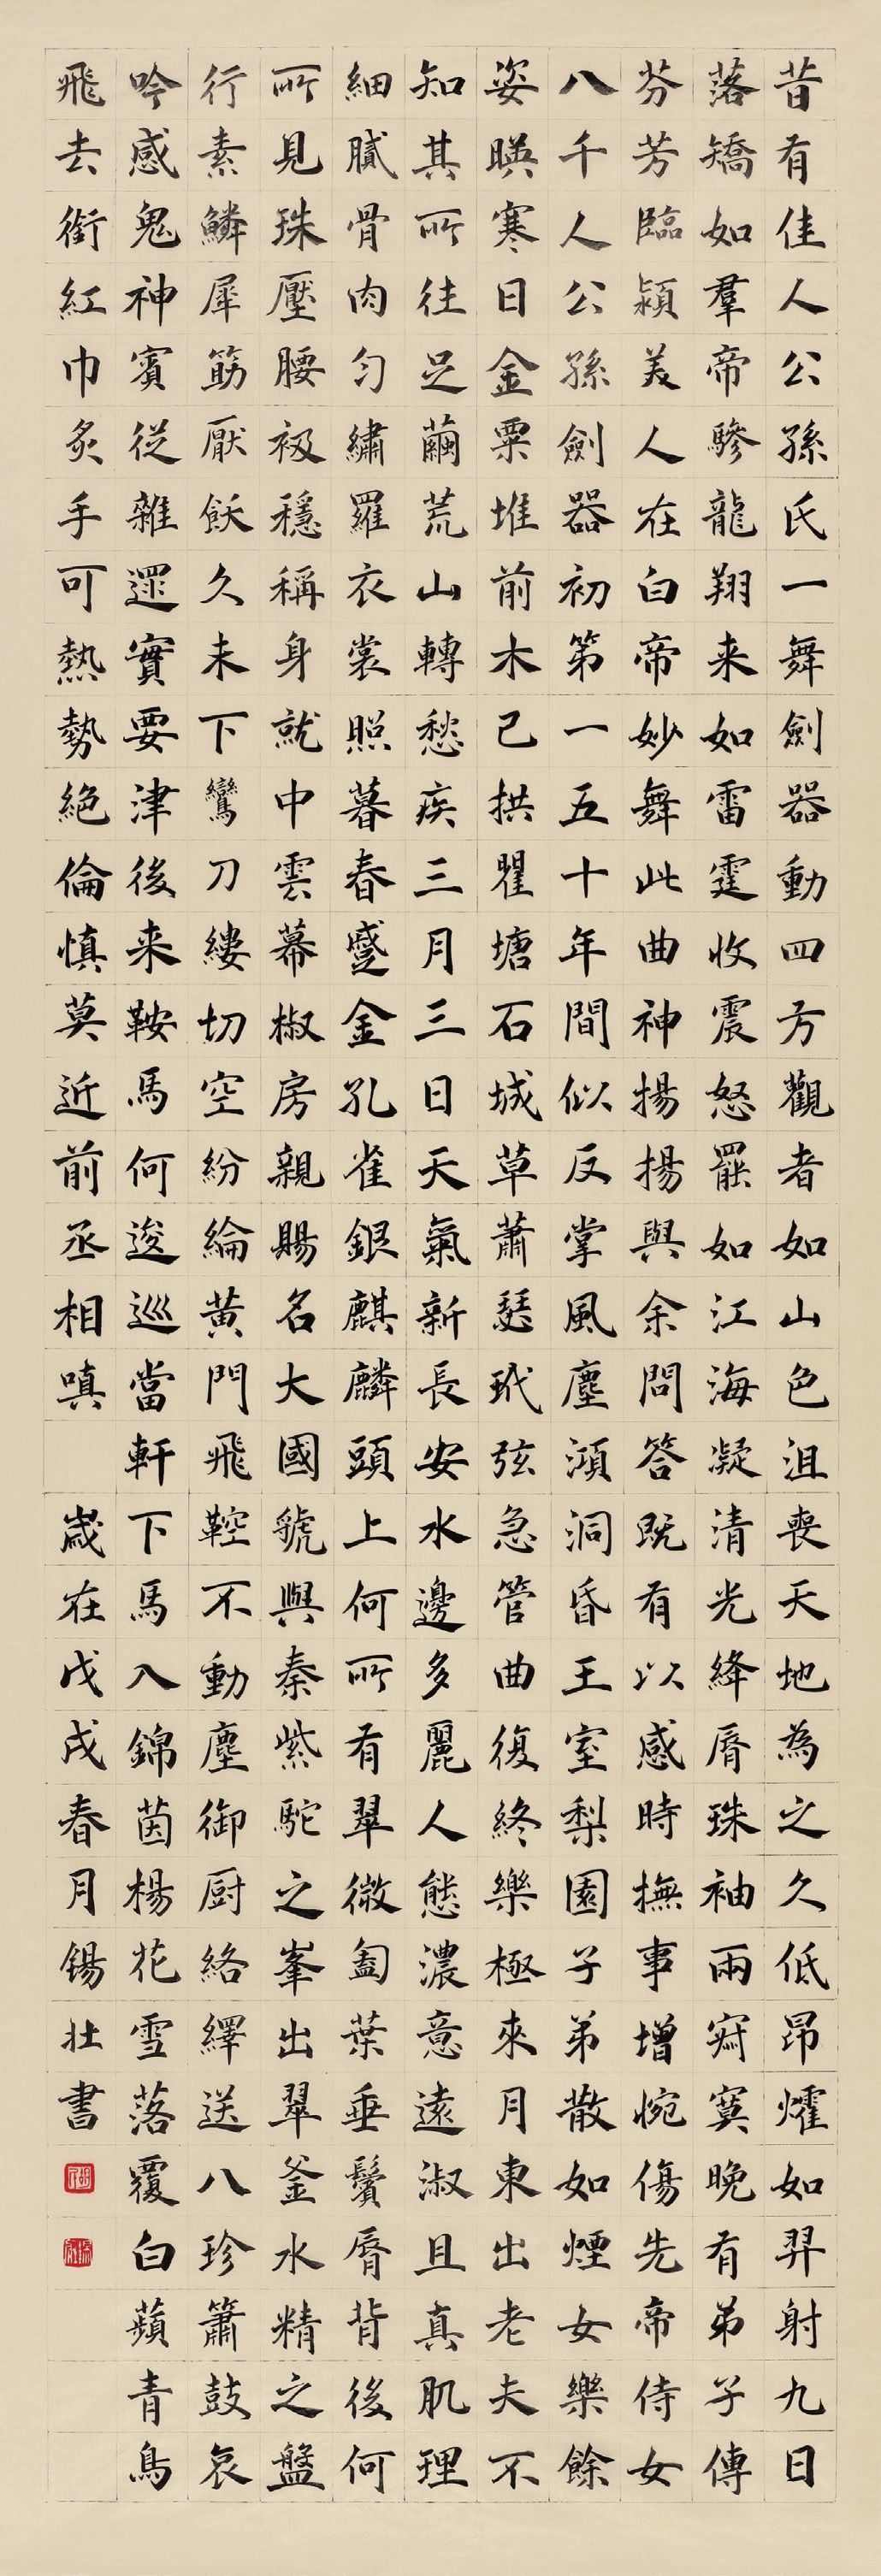 昔有佳人公孫氏一舞劍器動四方觀者如山色沮喪天地為之久低昂㸌如羿射九日
落矯如羣帝驂龍翔来如雷霆收震怒罷如江海凝清光絳脣珠袖兩寂寞晚有弟子傳
芬芳臨潁美人在白帝妙舞此曲神揚揚與余問答既有以感時撫事增惋傷先帝侍女
八千人公孫劍器初第一五十年間似反掌風塵澒洞昏王室梨園子弟散如煙女樂餘
姿暎寒日金粟堆前木已拱瞿塘石城草蕭瑟玳弦急管曲復終樂極來月東出老夫不
知其所往足繭荒山轉愁疾三月三日天氣新長安水邊多麗人態濃意遠淑且真肌理
細膩骨肉匀繡羅衣裳照暮春蹙金孔雀銀麒麟頭上何所有翠微㔩葉垂鬢脣背後何
所見珠壓腰衱穩稱身就中雲幕椒房親賜名大國虢與秦紫駝之峯出翠釜水精之盤
行素鱗犀筯厭飫久未下鸞刀縷切空紛綸黃門飛鞚不動塵御厨絡繹送八珍簫鼓哀
吟感鬼神賓從雜遝實要津後来鞍馬何逡巡當軒下馬入錦茵楊花雪落覆白蘋青鳥
飛去銜紅巾炙手可熱勢絕倫慎莫近前丞相嗔
歲在戊戌春月錫壯書